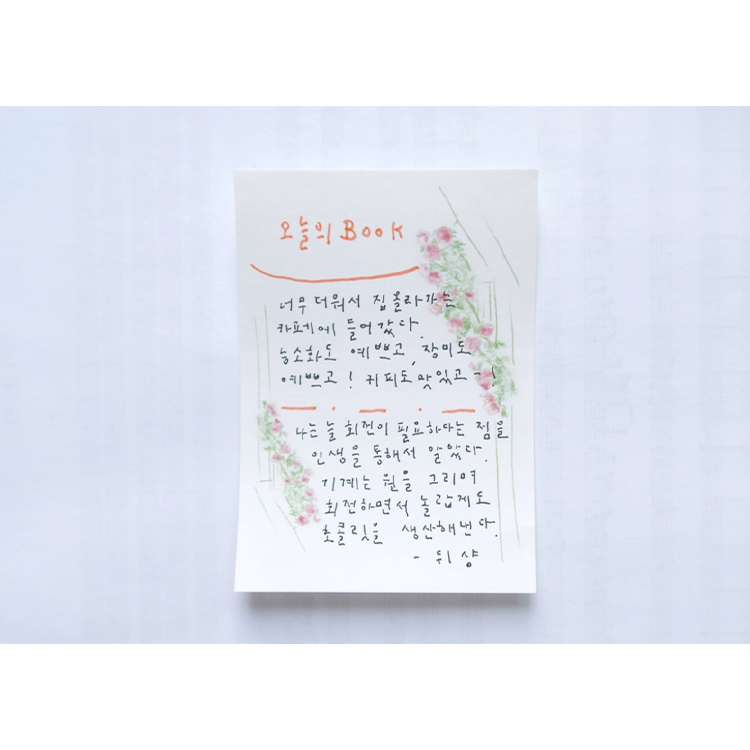 오늘의 BOOK
너무 더워서 집올라가는
카페에 들어갔다.
능소화도 예쁘고, 장미도
예쁘고! 커피도 맛있고~!
나는 늘 회전이 필요하다는 점을
인생을 통해서 알았다.
기계는 원을 그리며
회전하면서 놀랍게도
초콜릿을 생산해낸다.
- 뒤샹